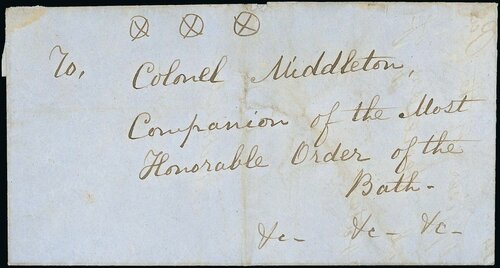 To, Colonel Middleton,
Companion of the Most
Honorable Order of the
Bath-
&c- &c- &c-